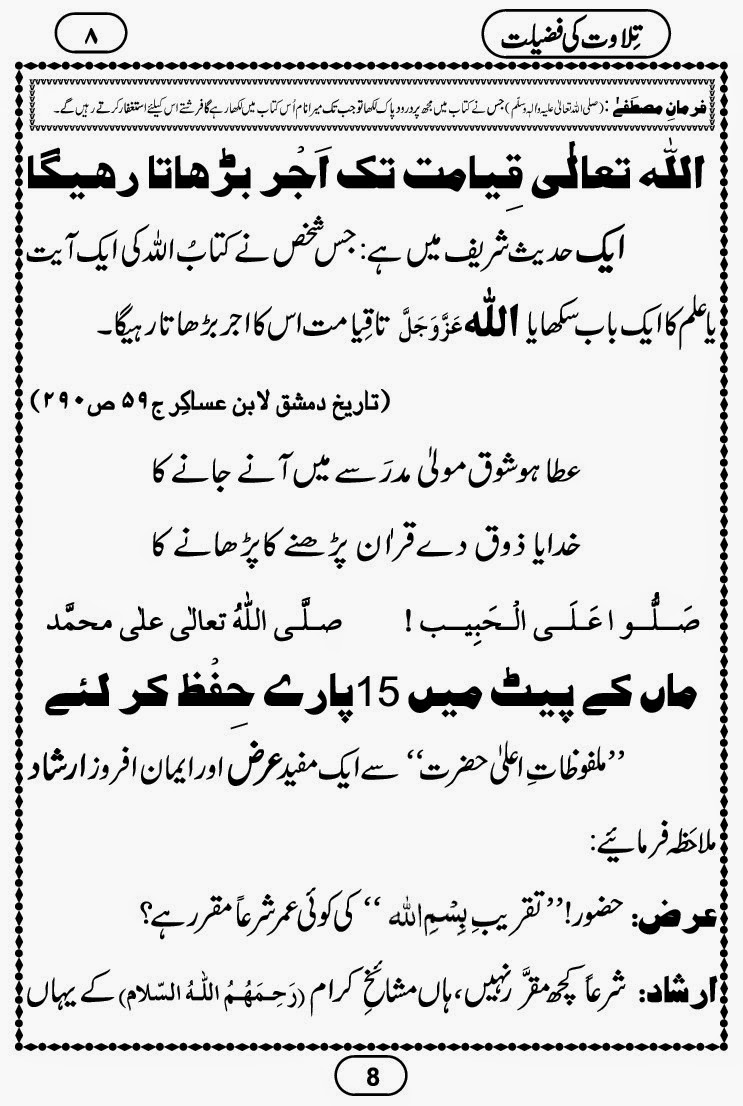 تِلاوت کی فضیلت
۸
فرمانِ مصطَفٰے : (صلی اللہ تعالیٰ علیہ والہ وسلّم) جس نے کتاب میں مجھ پر دُرود پاک لکھا تو جب تک میرا نام اُس کتاب میں لکھا رہے گا فرشتے اس کیلئے استغفار کرتے رہیں گے۔
اللّٰہ تعالٰی قِیامت تک اَجْر بڑھاتا رھیگا
ایک حدیث شریف میں ہے: جس شخص نے کتابُ اللہ کی ایک آیت
یا علم کا ایک باب سکھایا اللّٰہ عَزَّوَجَلَّ تا قِیامت اس کا اجر بڑھاتا رہیگا۔
(تاریخ دمشق لابن عساکِر ج۵۹ ص۲۹۰)
عطا ہو شوق مولیٰ مدرَسے میں آنے جانے کا
خدایا ذوق دے قراٰن پڑھنے کا پڑھانے کا
صَلُّوا عَلَی الْحَبِیب ! صلَّی اللّٰہُ تعالٰی علٰی محمَّد
ماں کے پیٹ میں 15 پارے حِفْظ کر لئے
’’ملفوظاتِ اعلیٰ حضرت‘‘ سے ایک مفید عرض اور ایمان افروز ارشاد
ملاحَظہ فرمائیے:
عرض: حضور! ’’تقریبِ بِسْمِ اللہ‘‘ کی کوئی عمر شرعاً مقرر ہے؟
ارشاد: شرعاً کچھ مقرَّر نہیں، ہاں مشائخِ کرام (رَحِمَهُمُ اللّٰہُ السّلام) کے یہاں
8